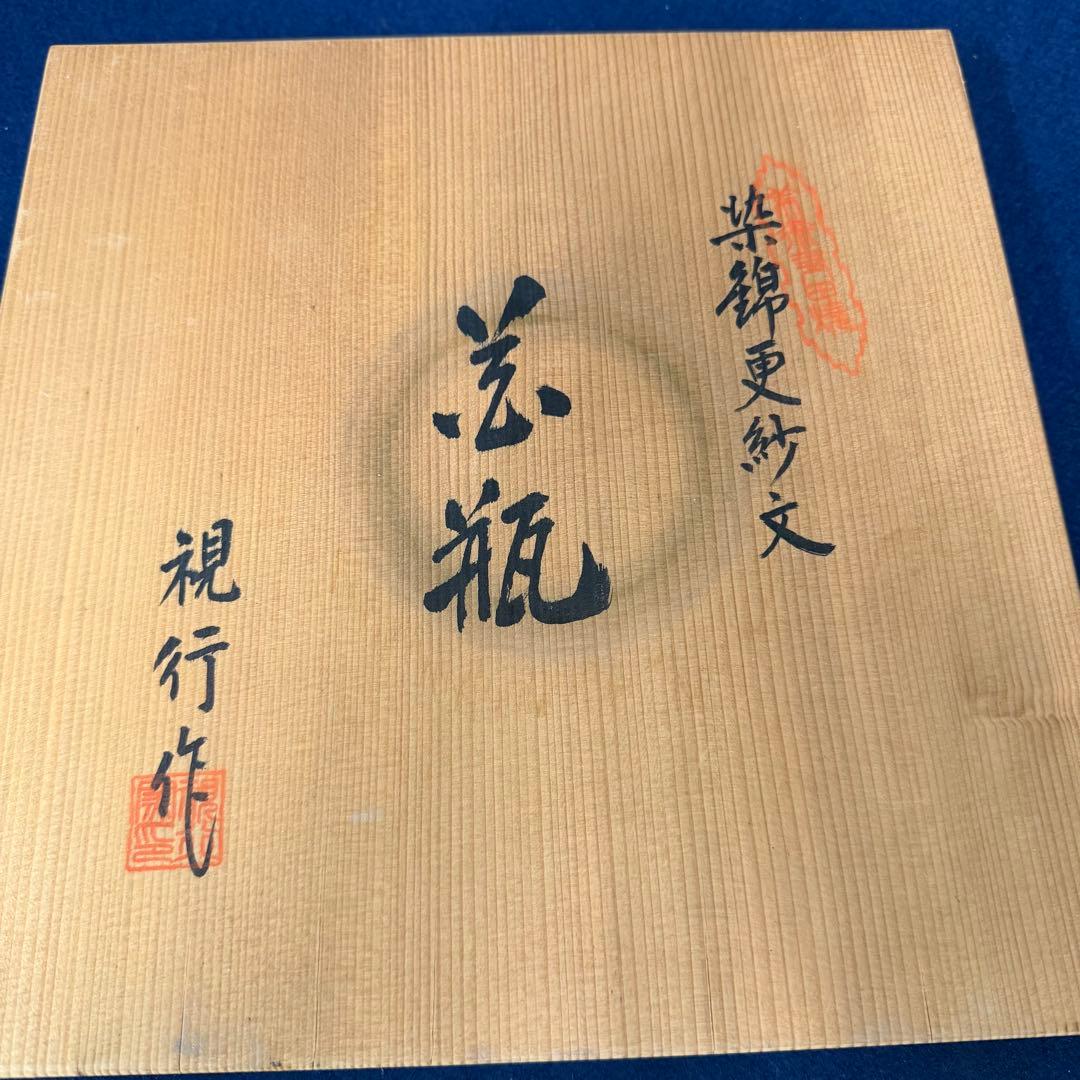 染錦更紗文
花瓶
視行作